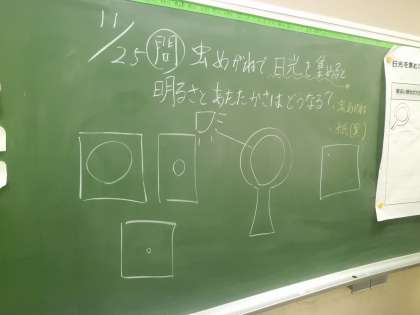 11/25 問 虫めがねで日光を集めると
明るさとあたたかさはどうなる?
虫めがね
紙(黒)
日光を集め